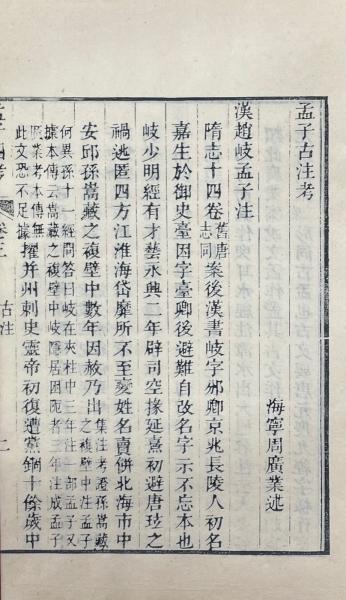 孟子古注考
海寧周廣業述
漢趙岐孟子注
隋志十四卷舊唐志同案後漢書岐字邠卿京兆長陵人初名
嘉生於御史臺因字臺卿後避難自改名字示不忘本也
岐少明經有才藝永興二年辟司空掾延熹初避唐玹之
禍逃匿四方江淮海岱靡所不至變姓名賣餅北海市中
安邱孫嵩藏之複壁中數年因赦乃出集注考證孫嵩藏之複壁中注孟子
何異孫十一經問答曰岐在夾柱中三年注一部孟子又
據本傳云嵩藏之複壁中岐因困阨者三年注成孟子
廣業考本傳無此文恐不足據擢并州刺史靈帝初復遭黨錮十餘歲中
四考
卷三
古注